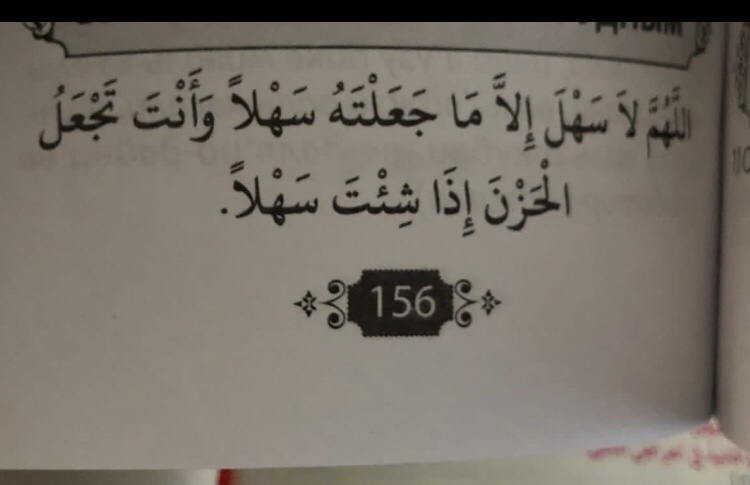 اللَّهُمَّ لاَ سَهْلَ إِلاَّ مَا جَعَلْتَهُ سَهْلاً وَأَنْتَ تَجْعَلُ
الْحَزْنَ إِذَا شِئْتَ سَهْلاً.
156